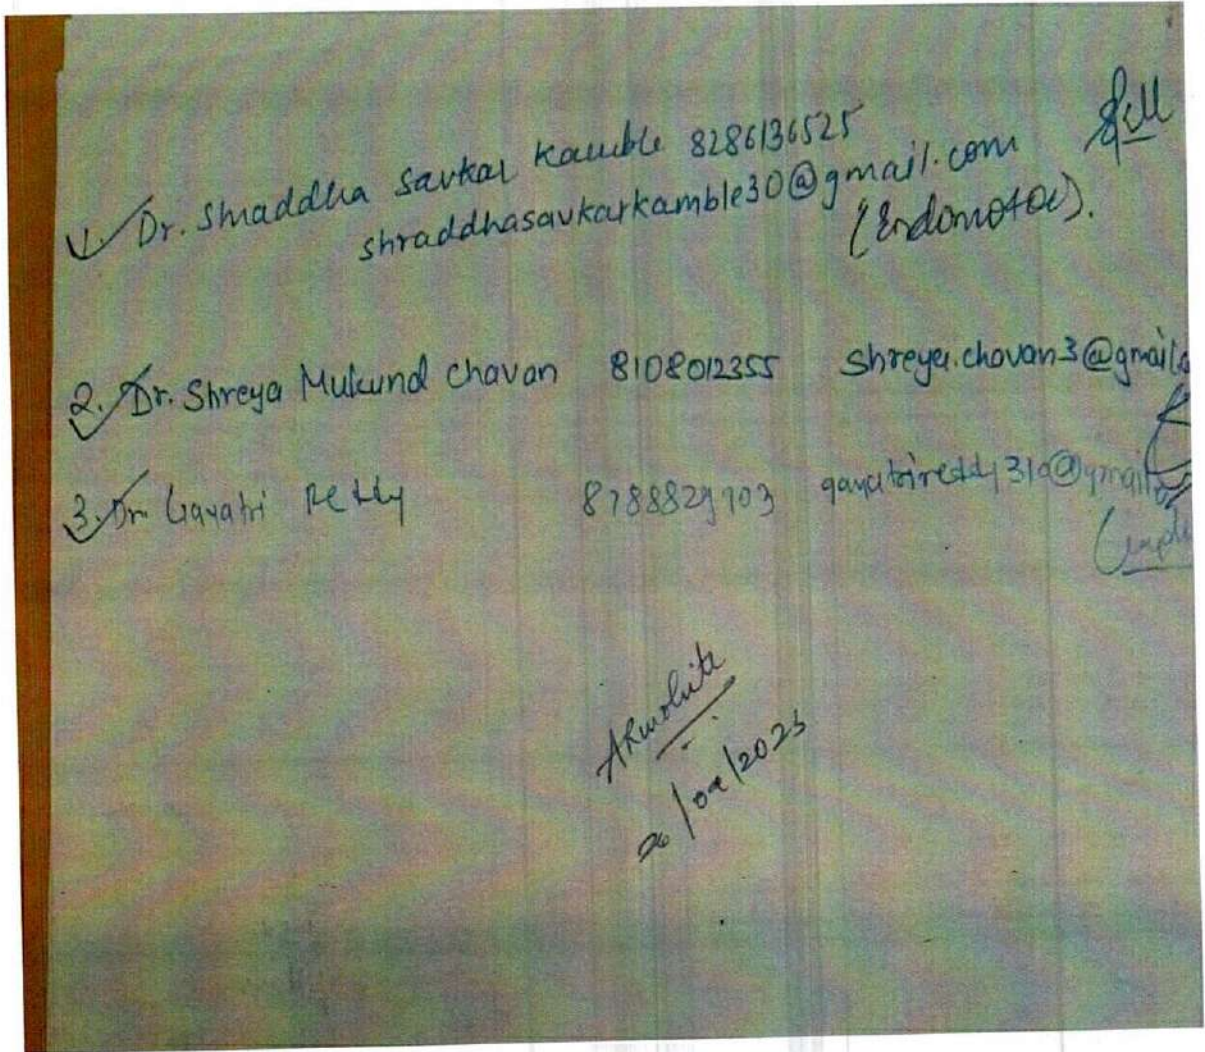 1. Dr. Shraddha Savkar Kamble 8286136525
shraddhasavkarkamble30@gmail.com
(Endomotor).
2. Dr. Shreya Mukund Chavan 8108012355 shreya.chavan3@gmail.
3. Dr. Gayatri Reddy gayatrireddy310@gmail